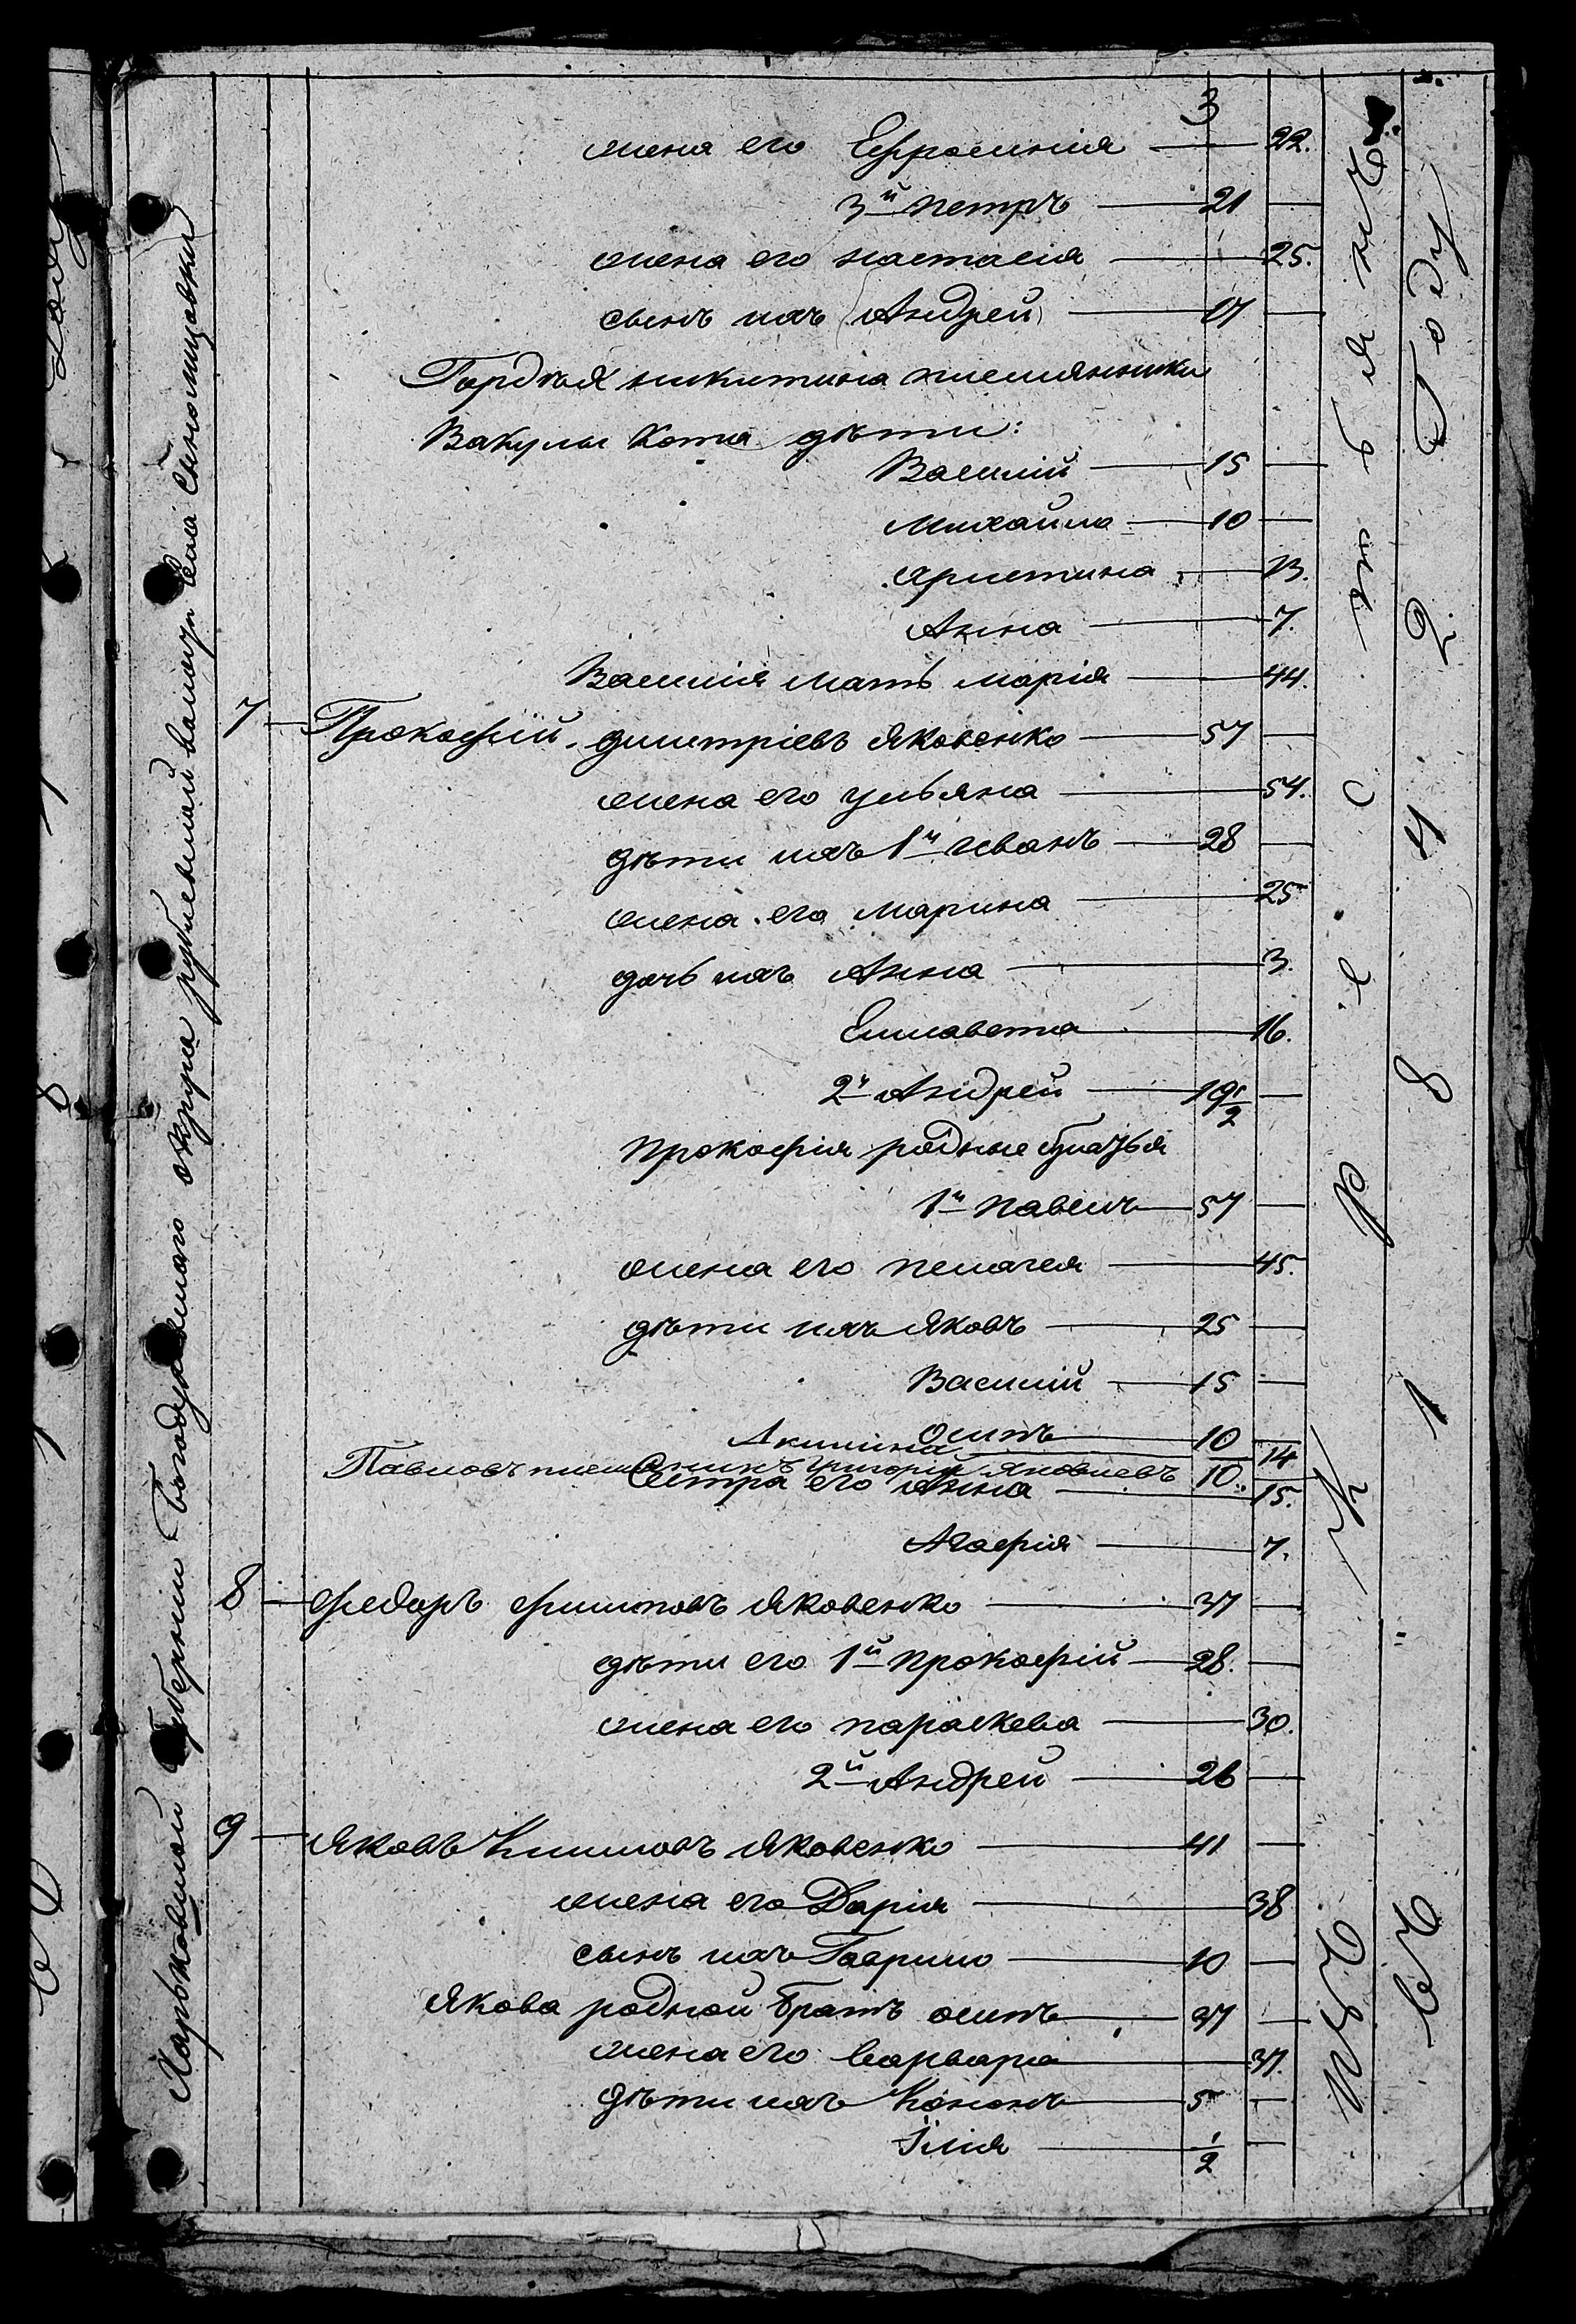 3
жена его Ефросинія — 22.
3й петръ — 21 —
жена его настасія — 25.
сынъ ихъ Андрей — —
Гордѣя никитина племянники
Вакулы Кота дѣти:
Василій — 15 —
михайло — 10 —
христина — 13.
Анна — 7.
Василія мать марія — 44.
7 — Прокофій димитріевъ яковенко — 57 —
жена его ульяна — 54.
дѣти ихъ 1й иванъ — 28 —
жена его марина — 25
дочь ихъ Анна — 3.
Елисавета — 16.
2й Андрей — 19 1/2 —
прокофія родные братья
1й павелъ — 57 —
жена его пелагея — 45.
дѣти ихъ яковъ — 25 —
Василій — 15 —
осипъ — 10 —
Акилина — 14
Павловъ племянникъ григорій яковлевъ 10.
Сестра его анна — 15.
Агафія — 7.
8 — федоръ филиповъ яковенко — 37 —
дѣти его 1й прокофій — 28. —
жена его параскева — 30.
2й Андрей — 26 —
9 — яковъ Климовъ яковенко — 41 —
жена его Дарія — 38
сынъ ихъ Гаврило — 10 —
якова родной братъ осипъ — 37 —
жена его варвара — 37.
дѣти ихъ Кононъ — 5 —
Илія — 1/2 —
Харьковской Губерніи Богодуховскаго округа рублевской волости села Сенолицовки
изъ крестьянъ
въ 1842. Году